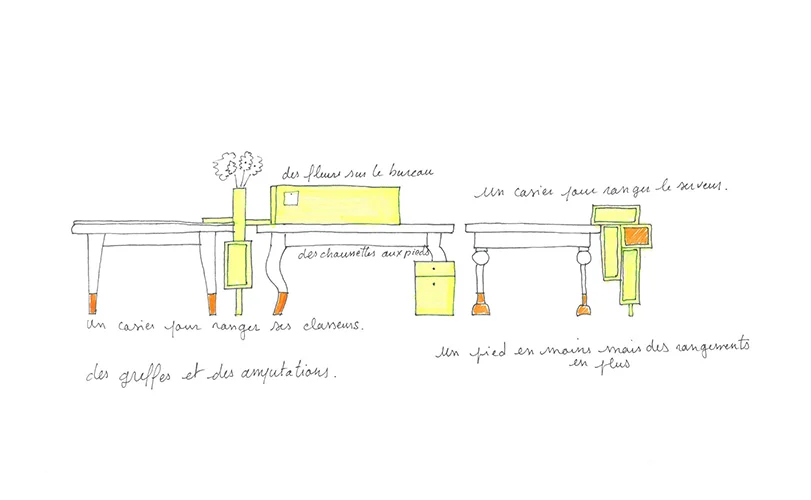 des fleurs sur le bureau
un casier pour ranger le serveur.
des chaussettes aux pieds
un casier pour ranger ses classeurs.
un pied en moins mais des rangements
en plus
des greffes et des amputations.